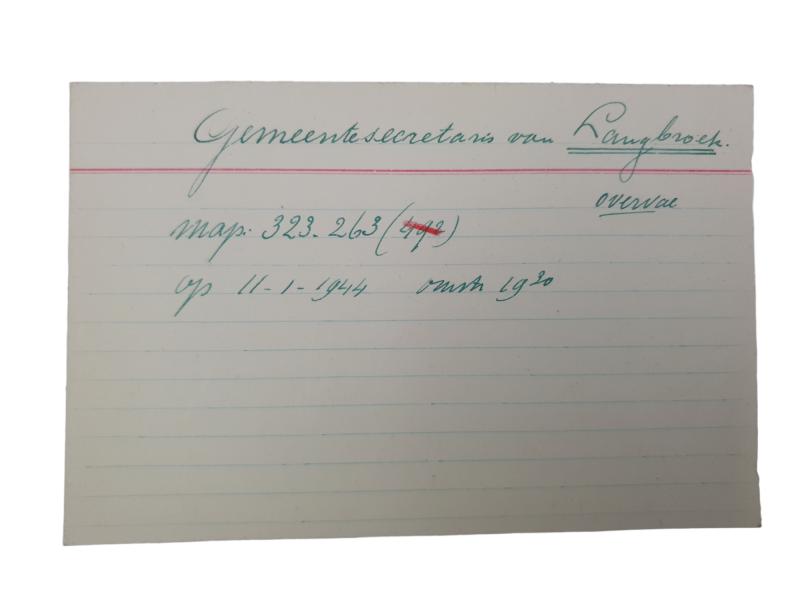 Gemeentesecretaris van Langbroek.
overval
map. 323.263 (492)
op 11-1-1944 omstr 1930